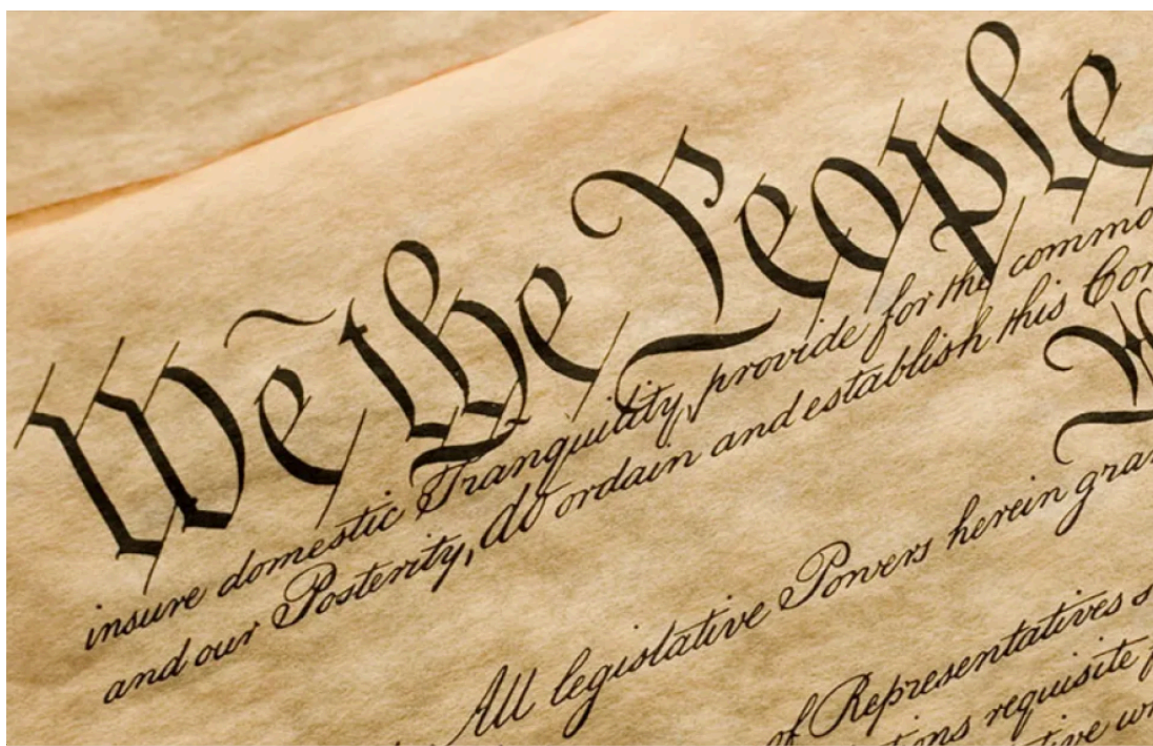 We the People
insure domestic Tranquility, provide for the commo
and our Posterity, do ordain and establish this Con
All legislative Powers herein gra
of Representatives s
ions requisite f
tive w